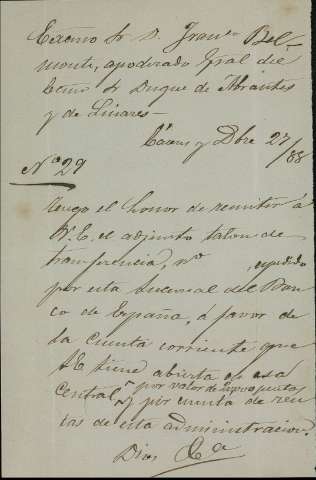 Excmo Sr D. Franco Bel-
monte, apoderado Gral del
Excmo Sr Duque de Abrantes
y de Linares-
Cáceres y Dbre 27/88
No 29
Tengo el honor de remitir á
V.E. el adjunto talon de
transferencia, no , espedido
por esta Sucursal del Ban-
co de España, á favor de
la cuenta corriente que
SE tiene abierta en esa
Central, por valor de pesetas
y por cuenta de ren-
tas de esta administracion.
Dios &a